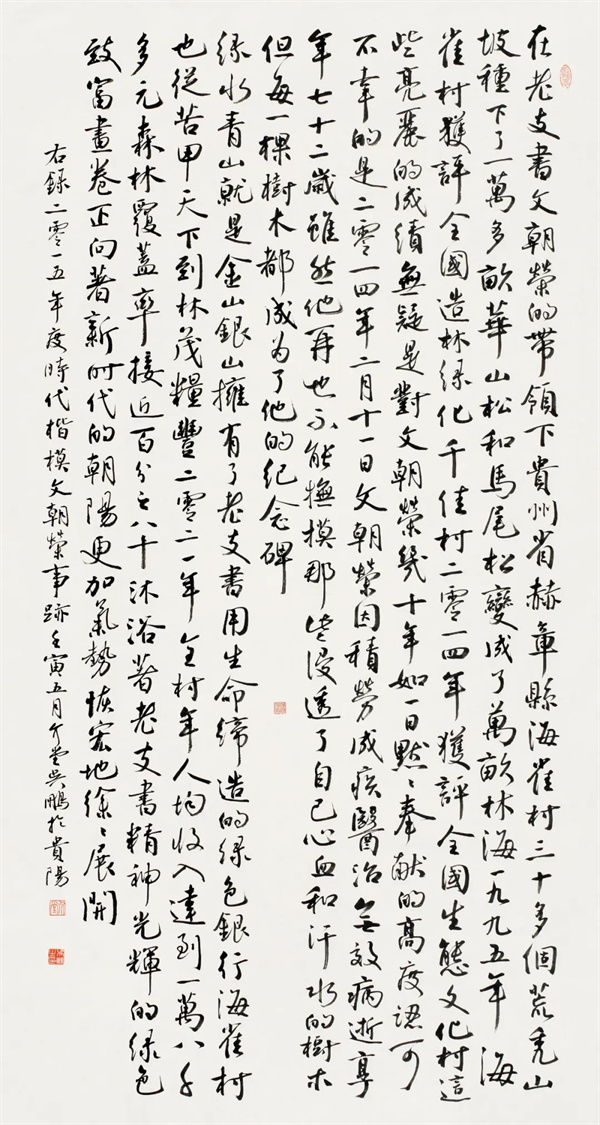 在老支書文朝榮的帶領下貴州省赫章縣海雀村三十多個荒禿山
坡種下了一萬多畝華山松和馬尾松變成了萬畝林海一九九五年海
雀村獲評全國造林綠化千佳村二零一四年獲評全國生態文化村這
些亮麗的成績無疑是對文朝榮幾十年如一日默默奉献的高度認可
不幸的是二零一四年二月十一日文朝榮因積勞成疾醫治無效病逝享
年七十二歲雖然他再也不能撫摸那些浸透了自己心血和汗水的樹木
但每一棵樹木都成为了他的纪念碑
绿水青山就是金山銀山擁有了老支書用生命締造的绿色銀行海雀村
也從苦甲天下到林茂糧豐二零二一年全村年人均收入達到一萬八千
多元森林覆蓋率接近百分之八十沐浴著老支書精神光輝的绿色
致富畫卷正向著新时代的朝陽更加氣勢恢宏地徐徐展開
右録二零一五年度時代楷模文朝榮事跡壬寅五月介堂吴鵬於貴陽